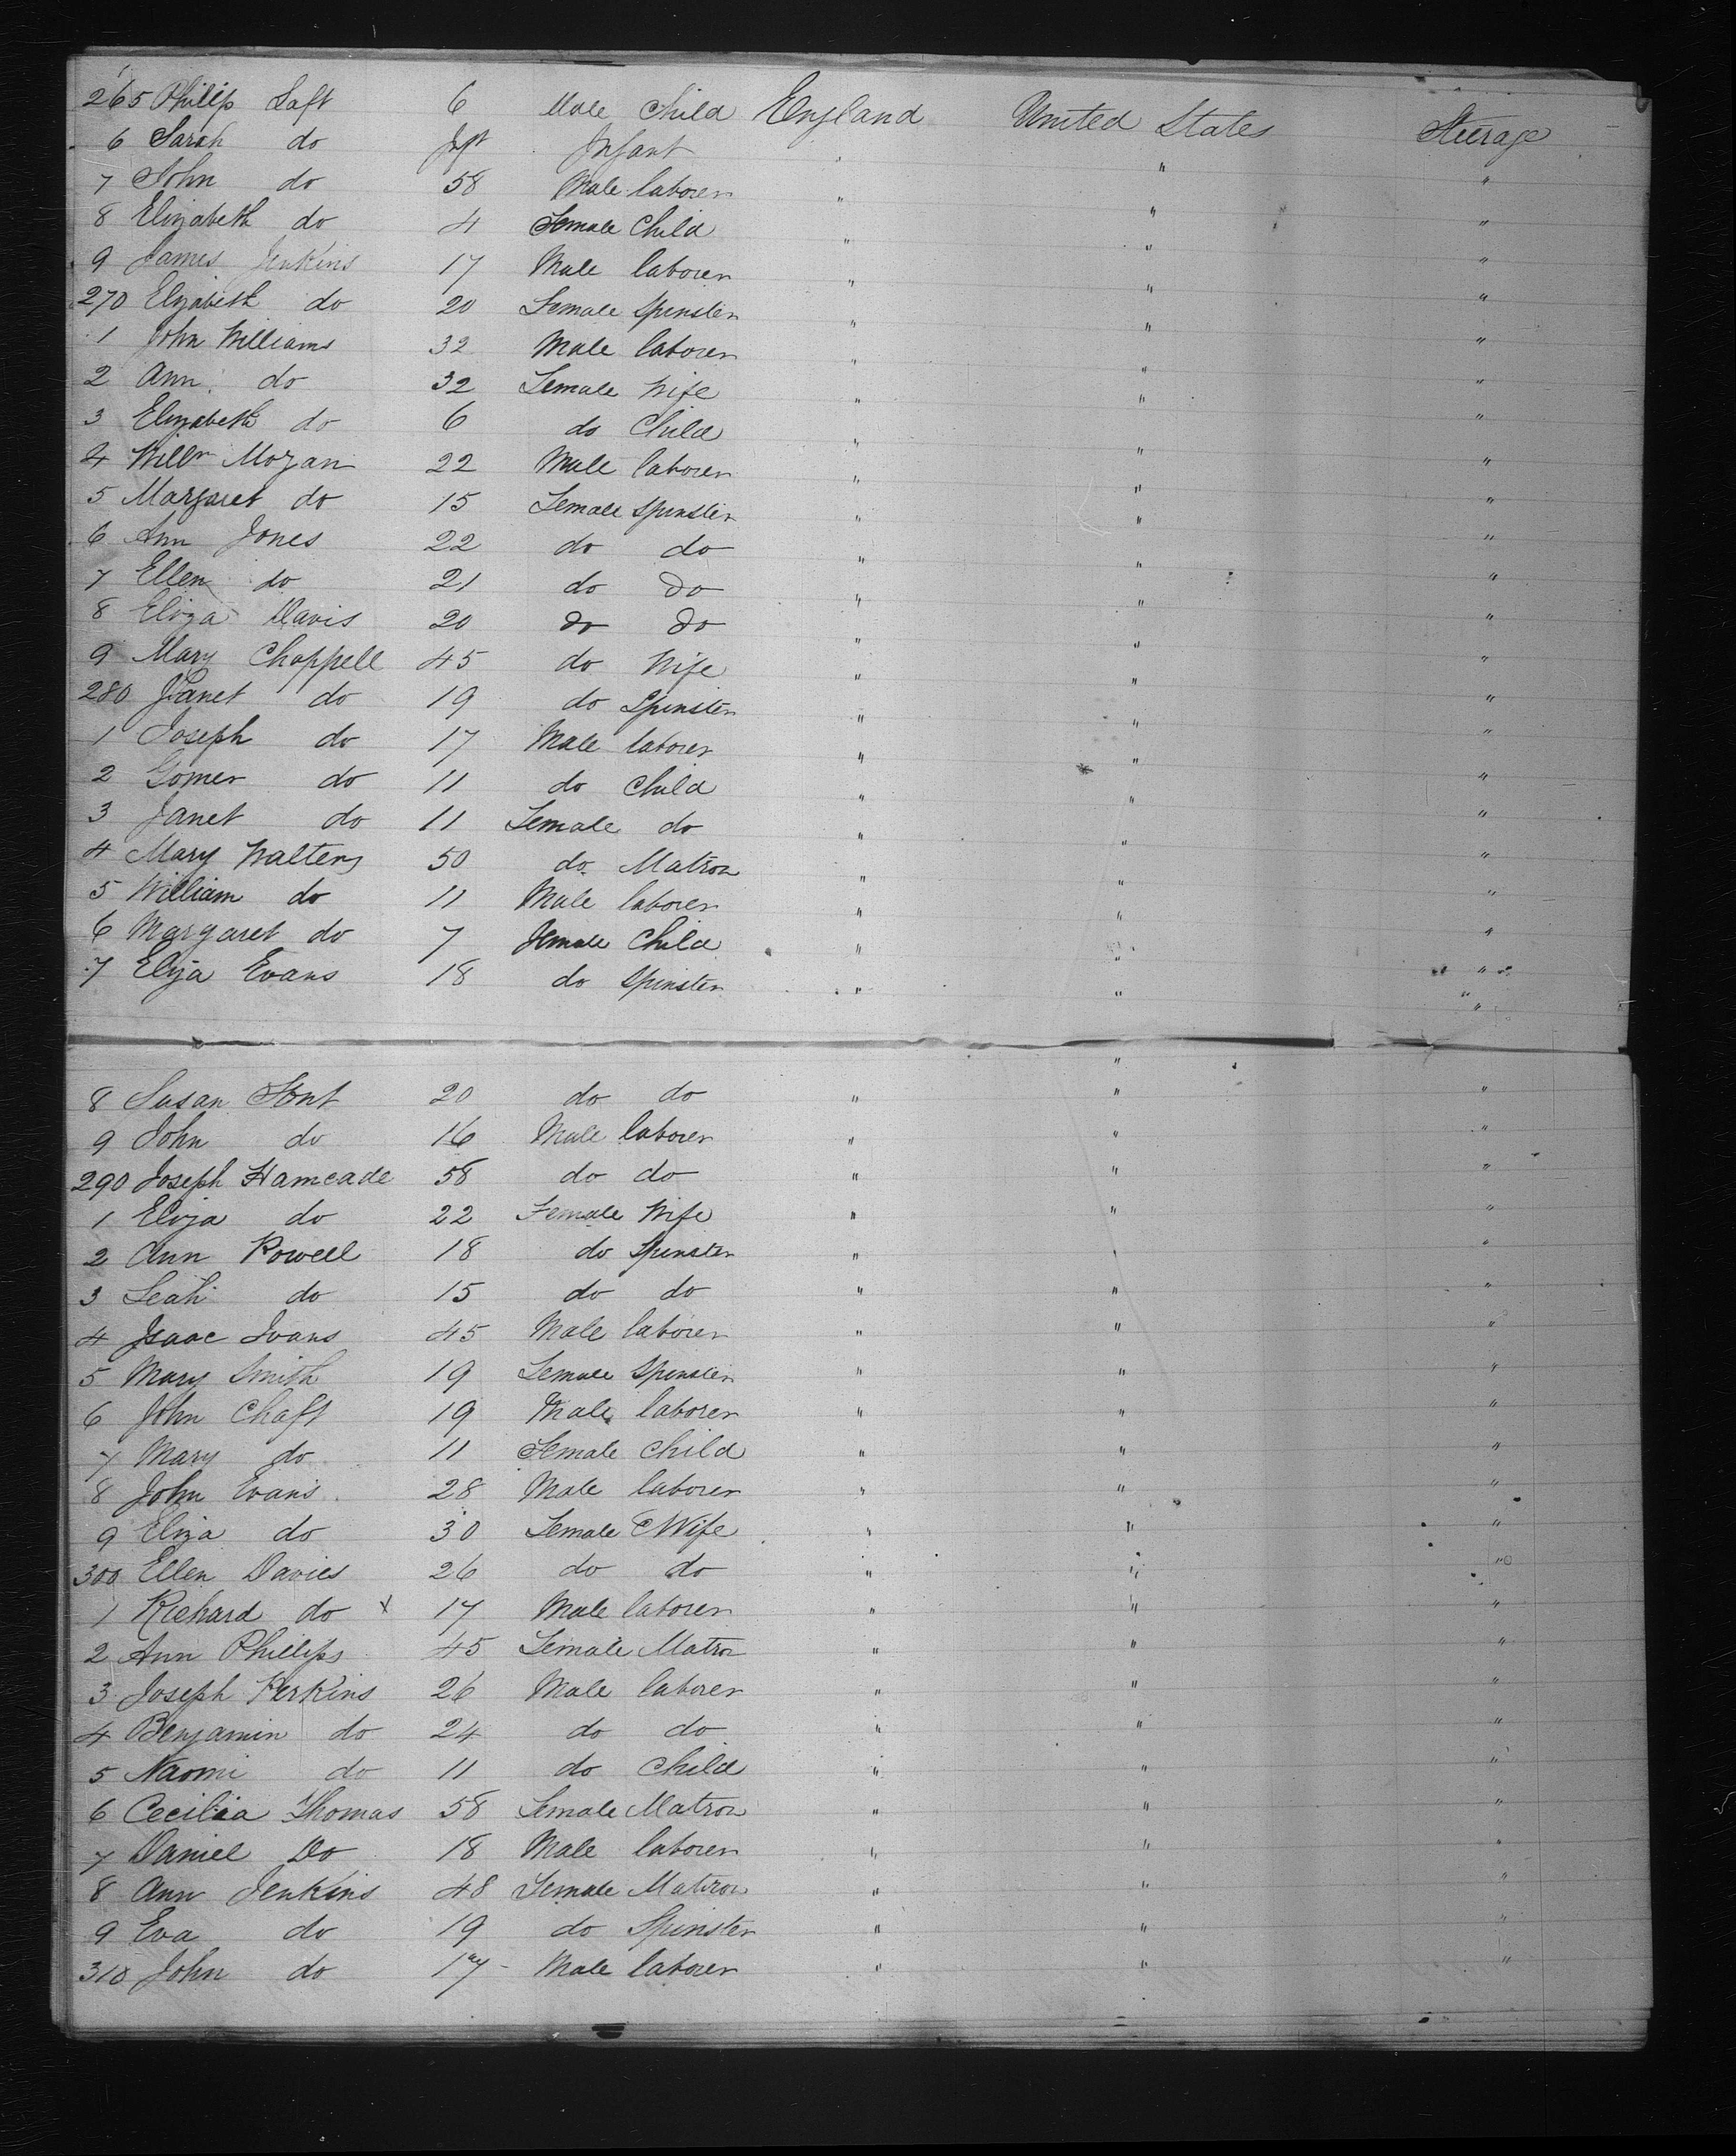 265 Philip Saft 6 Male Child England United States Steerage
6 Sarah do Inft Infant " " "
7 John do 58 Male laborer " " "
8 Elizabeth do 4 Female Child " " "
9 James Jenkins 17 Male laborer " " "
270 Elizabeth do 20 Female Spinster " " "
1 John Williams 32 Male laborer " " "
2 Ann do 32 Female Wife " " "
3 Elizabeth do 6 do Child " " "
4 Willm Morgan 22 Male laborer " " "
5 Margaret do 15 Female Spinster " " "
6 Ann Jones 22 do do " " "
7 Ellen do 21 do do " " "
8 Eliza Davis 20 do do " " "
9 Mary Chappell 45 do Wife " " "
280 Janet do 19 do Spinster " " "
1 Joseph do 17 Male laborer " " "
2 Gomer do 11 do Child " " "
3 Janet do 11 Female do " " "
4 Mary Walters 50 do Matron " " "
5 William do 11 Male laborer " " "
6 Margaret do 7 Female Child " " "
7 Eliza Evans 18 do Spinster " " "
8 Susan 20 do do " " "
9 John do 16 Male laborer " " "
290 Joseph Hamcade 58 do do " " "
1 Eliza do 22 Female Wife " " "
2 Ann Powell 18 do Spinster " " "
3 Leah do 15 do do " " "
4 Isaac Ivans 45 Male laborer " " "
5 Mary Smith 19 Female Spinster " " "
6 John Chaft 19 Male laborer " " "
7 Mary do 11 Female Child " " "
8 John Evans 28 Male laborer " " "
9 Eliza do 30 Female Wife " " "
300 Ellen Davies 26 do do " " "
1 Richard do x 17 Male laborer " " "
2 Ann Phillips 45 Female Matron " " "
3 Joseph Perkins 26 Male laborer " " "
4 Benjamin do 24 do do " " "
5 Naomi do 11 do Child " " "
6 Cecilia Thomas 58 Female Matron " " "
7 Daniel Do 18 Male laborer " " "
8 Ann Jenkins 48 Female Matron " " "
9 Eva do 19 do Spinster " " "
310 John do 17 Male laborer " " "